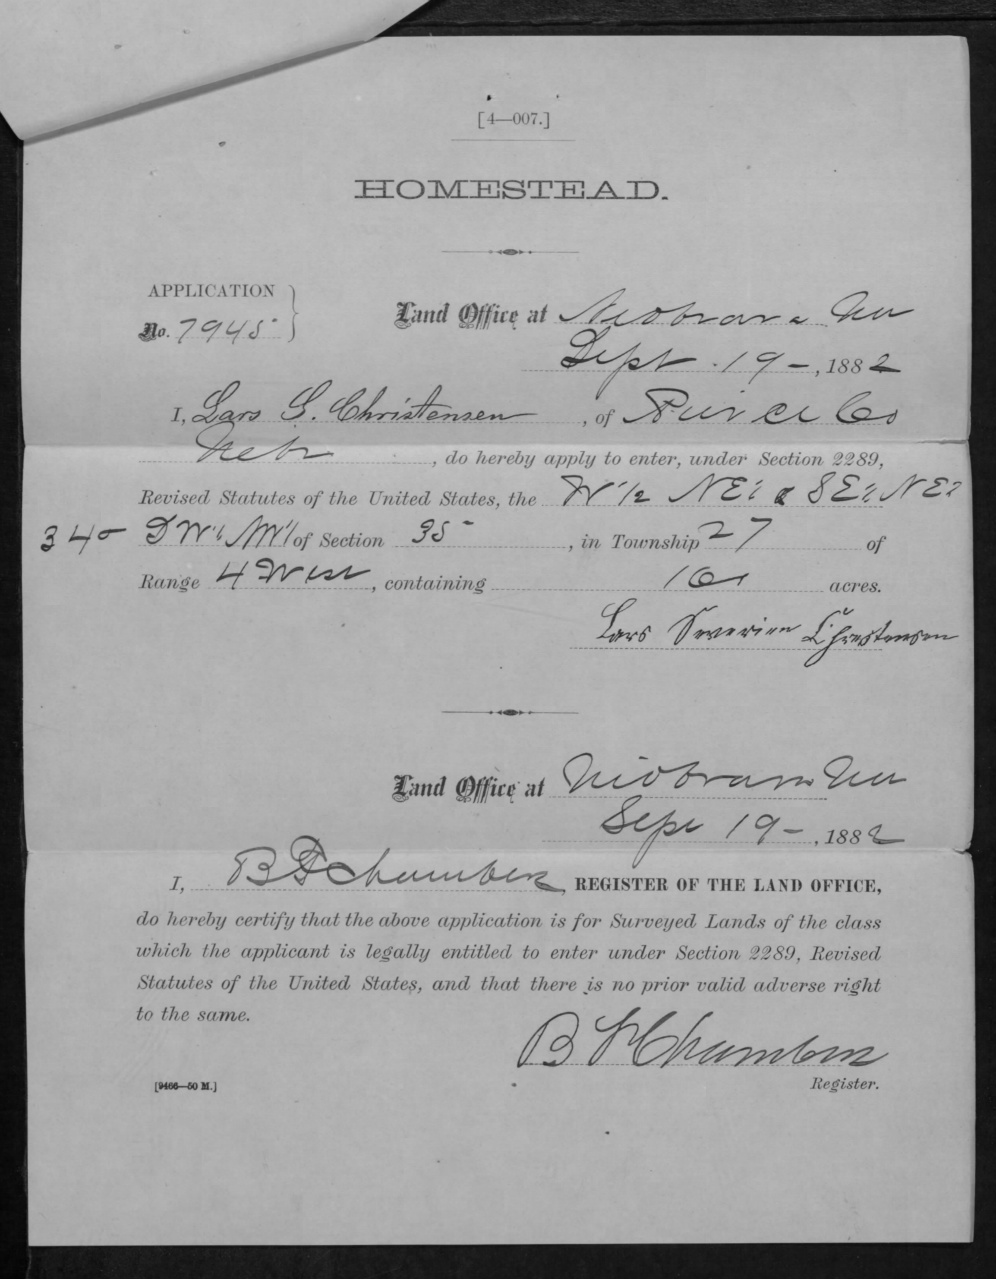 [4—007.]
HOMESTEAD.
APPLICATION
No. 7945
Land Office at Niobrara
Sept. 19 —, 1882
I, Lars S. Christensen, of Pierce Co
Nebr, do hereby apply to enter, under Section 2289,
Revised Statutes of the United States, the W½ NE¼ & SE¼ NE¼
of Section 35, in Township 27 of
Range 4 West, containing 160 acres.
Lars Severien Christensen
Land Office at Niobrara
Sept 19 —, 1882
I, B F Chambers, REGISTER OF THE LAND OFFICE,
do hereby certify that the above application is for Surveyed Lands of the class
which the applicant is legally entitled to enter under Section 2289, Revised
Statutes of the United States, and that there is no prior valid adverse right
to the same.
B F Chambers
[9466—50 M.]
Register.